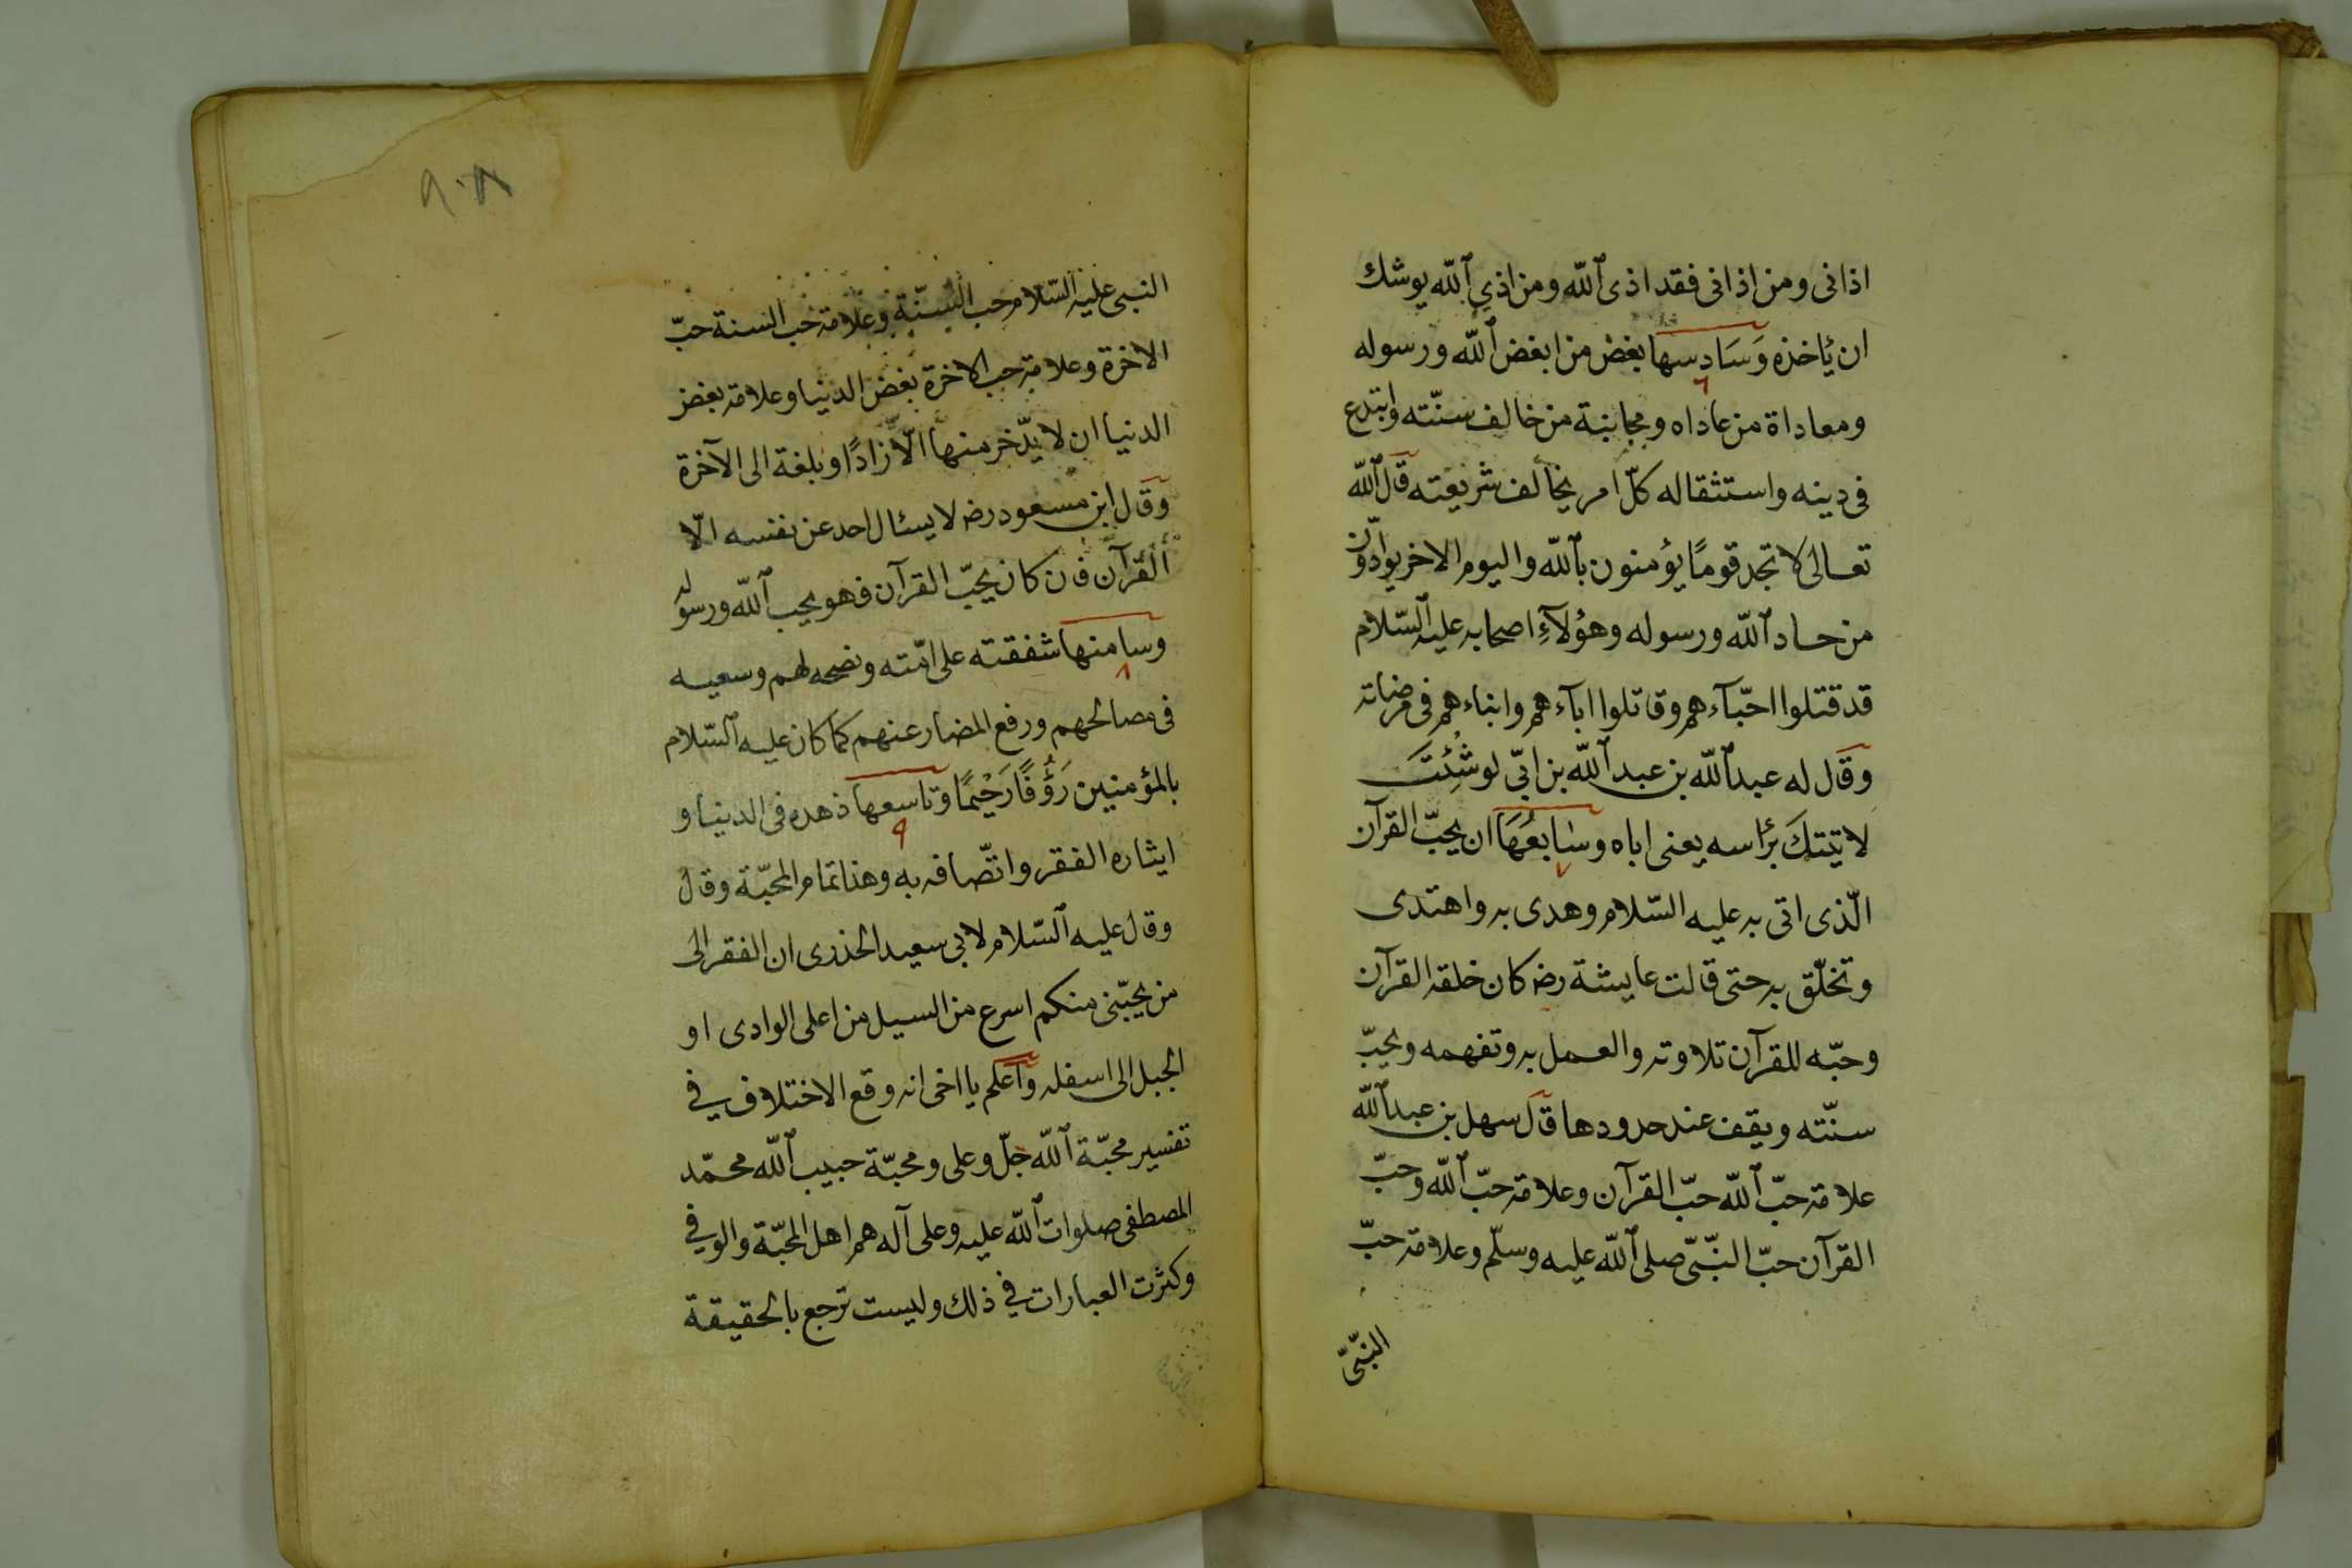 اذانى ومن اذانى فقد اذى الله ومن اذى الله يوشك
ان ئاخذه وَسَادِسها بغض من ابغض الله ورسوله
٦
ومعاداة من عاداه ومجانبة من خالف سنّته وابتدع
فى دينه واستثقاله كلّ امر يخالف شريعته قال الله
تعالى لا تجد قومًا يؤمنون بالله واليوم الاخر يوادّون
من حاد الله ورسوله وهؤلآءِ اصحابه عليه السّلام
قد قتلوا احبّآءهم وقاتلوا اباءهم وابناءهم فى مرضاته
وقال له عبد الله بن عبد الله بن ابىّ لو شِئْتَ
لاتيتكَ برٔاسه يعنى اباه وسَابعُهَا ان يحبّ القرآن
٧
الّذى اتى به عليه السّلام وهدى به واهتدى
وتخلّق به حتى قالت عايشة رضه كان خلقه القرآن
وحبّه للقرآن تلاوته والعمل به وتفهمه ويحبّ
سنّته ويقف عند حدودها قال سهل بن عبد الله
علامة حبّ الله حبّ القرآن وعلامة حبّ الله وحبّ
القرآن حبّ النبّىّ صلى الله عليه وسلّم وعلامة حبّ
النبّىّ
٩٠٨
النبى عليه السّلام حب السّنّة وعلامة حب السنة حبّ
الاخرة وعلامة حب الاخرة بغض الدنيا وعلامة بغض
الدنيا ان لا يدّخر منها الّا زادًا وبلغة الى الآخرة
وقال ابن مسعود رضه لا يسئال احد عن نفسه الّا
القرآن فان كان يحبّ القرآن فهو يحب الله ورسوله
وسامنها شفقته على امّته ونصحه لهم وسعيه
٨
فى مصالحهم ورفع المضار عنهم كما كان عليه السّلام
بالمؤمنين رَؤُفًا رَحْيمًا وتاسعها ذهده فى الدنيا و
٩
ايثاره الفقر واتّصافه به وهذا تمام المحبّة وقال
وقال عليه السّلام لابى سعيد الخذرى ان الفقر الى
من يحبّنى منكم اسرع من السيل من اعلى الوادى او
الجبل الى اسفله واعلم يا اخى انه وقع الاختلاف في
تفسير محبّة الله جلّ وعلى ومحبّة حبيب الله محمّد
المصطفى صلوات الله عليه وعلى آله هم اهل المحبّة والوفي
وكثرت العبارات في ذلك وليست ترجع بالحقيقة